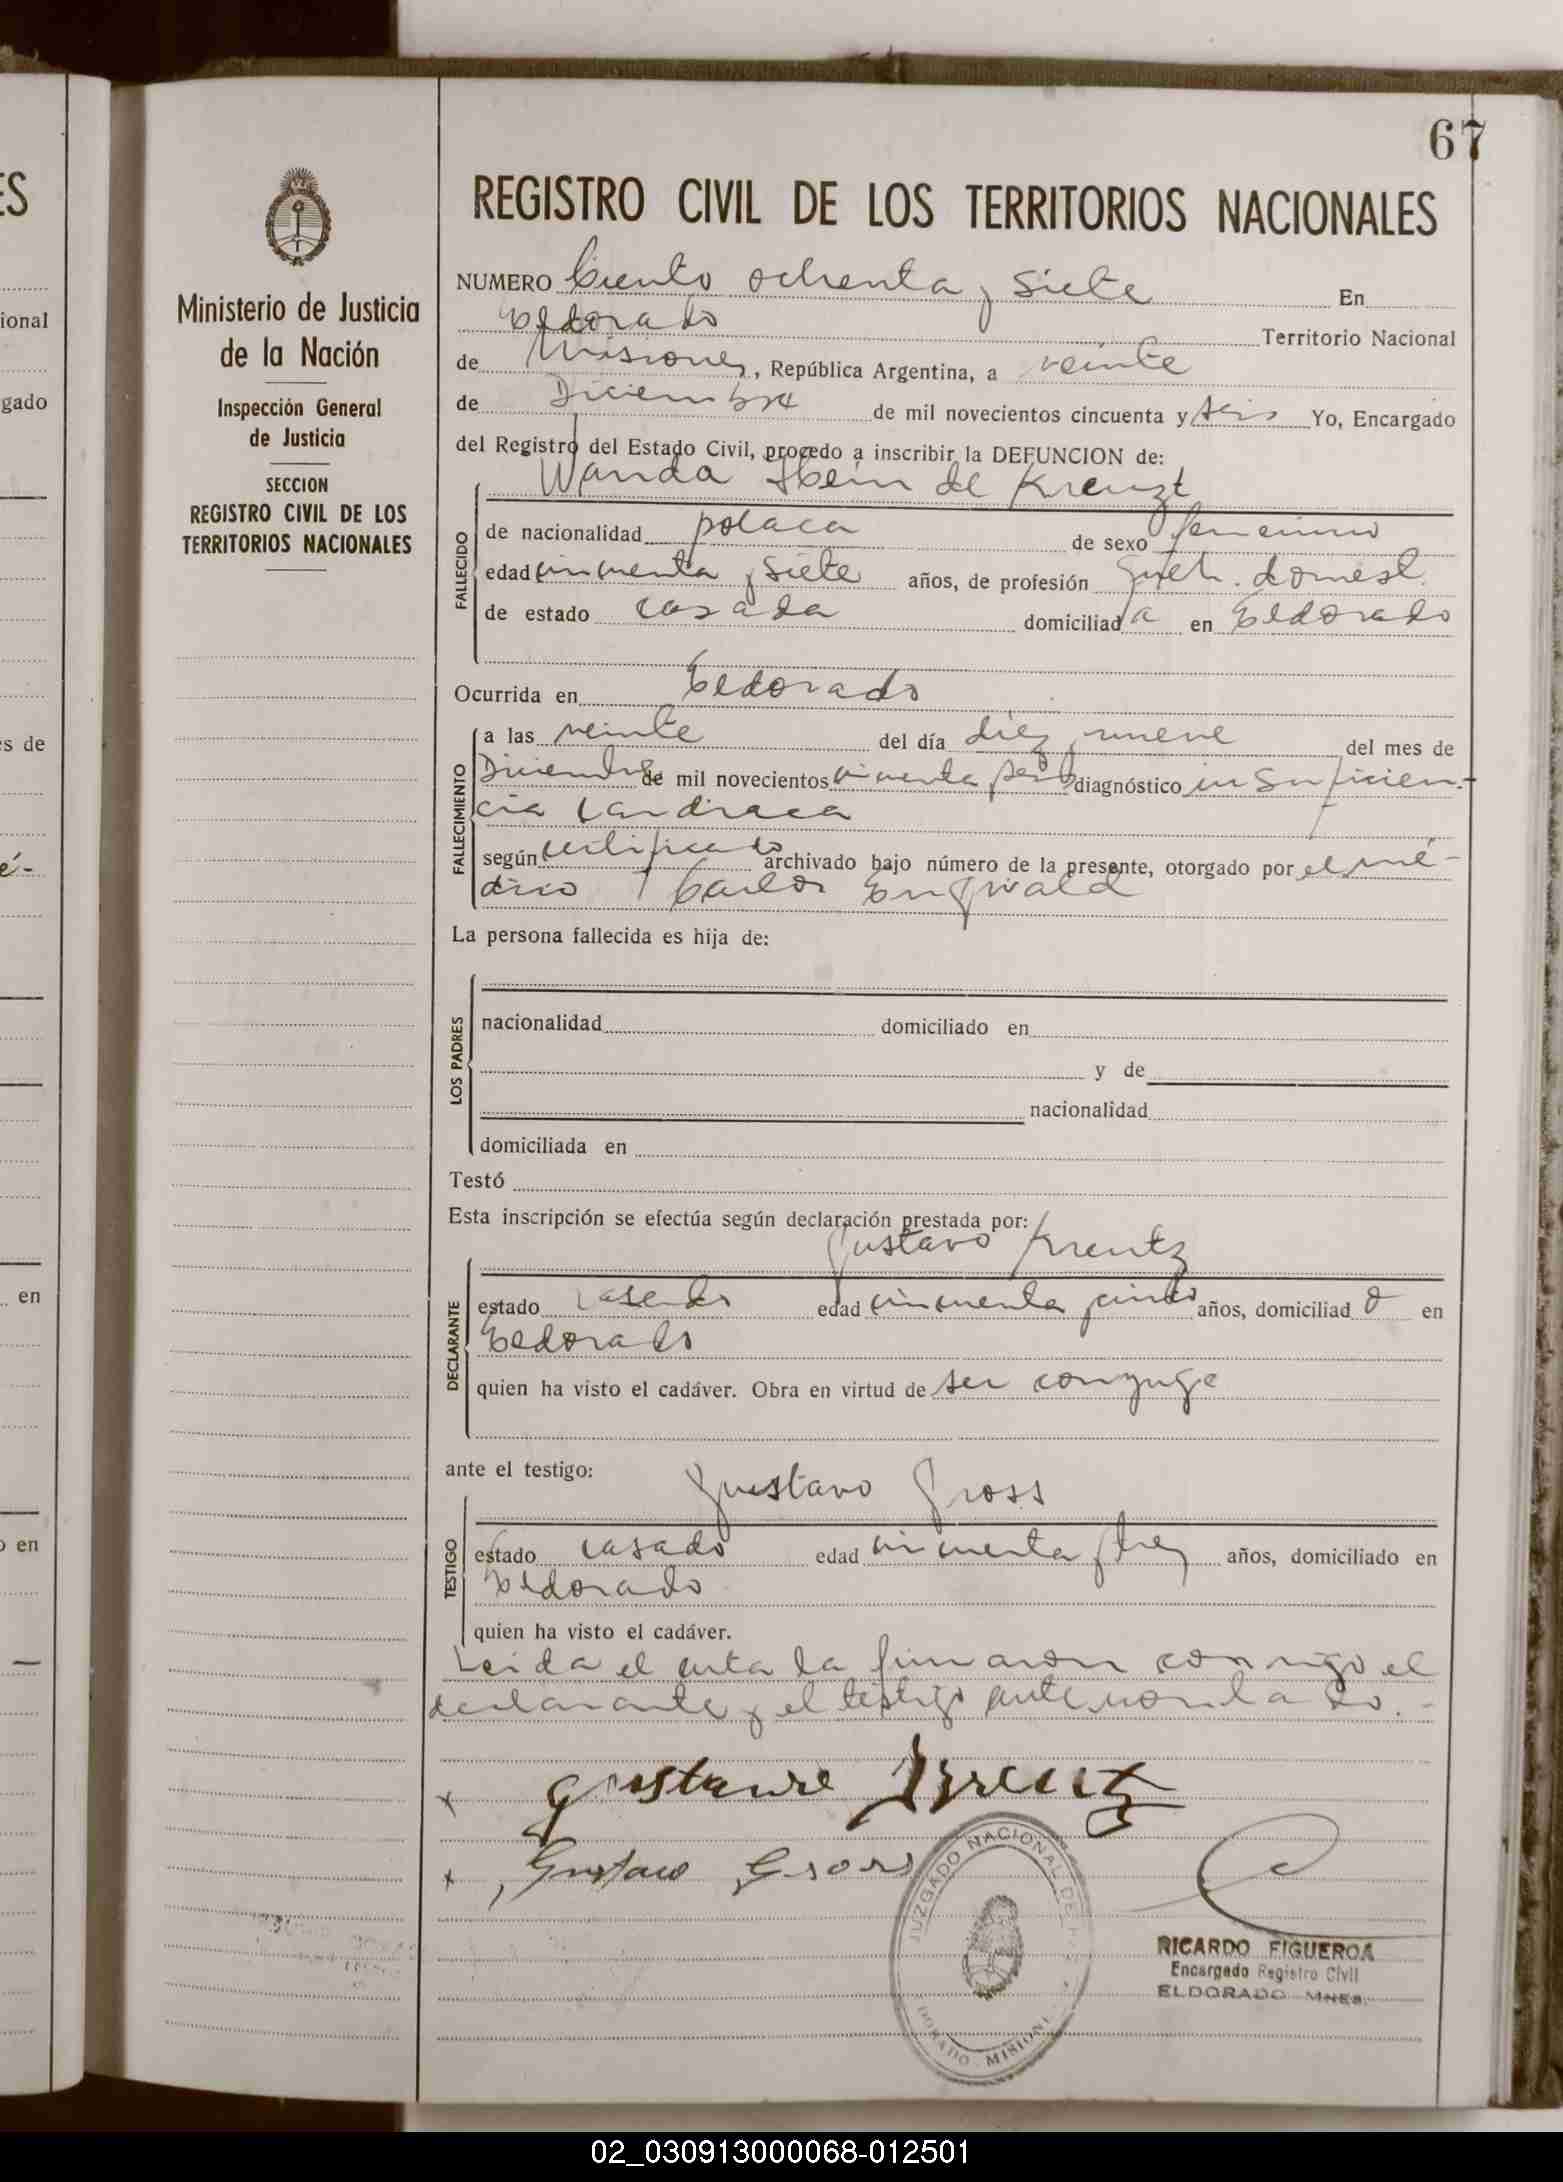 67
Ministerio de Justicia
de la Nación
Inspección General
de Justicia
SECCION
REGISTRO CIVIL DE LOS
TERRITORIOS NACIONALES
REGISTRO CIVIL DE LOS TERRITORIOS NACIONALES
NUMERO Ciento ochenta y siete En
Eldorado Territorio Nacional
de Misiones, República Argentina, a veinte
de Diciembre de mil novecientos cincuenta y seis Yo, Encargado
del Registro del Estado Civil, procedo a inscribir la DEFUNCION de:
Wanda Hein de Kreuzt
FALLECIDO
de nacionalidad polaca de sexo femenino
edad cincuenta y siete años, de profesión queh. domest.
de estado casada domiciliada en Eldorado
Ocurrida en Eldorado
FALLECIMIENTO
a las veinte del día diez y nueve del mes de
Diciembre de mil novecientos cincuenta y seis diagnóstico insuficien-
cia cardiaca
según certificado archivado bajo número de la presente, otorgado por el mé-
dico Carlos
La persona fallecida es hija de:
LOS PADRES
nacionalidad domiciliado en
y de
nacionalidad
domiciliada en
Testó
Esta inscripción se efectúa según declaración prestada por:
Gustavo Kreutz
DECLARANTE
estado casado edad cincuenta y cinco años, domiciliado en
Eldorado
quien ha visto el cadáver. Obra en virtud de ser conyuge
ante el testigo:
Gustavo Gross
TESTIGO
estado casado edad cincuenta y tres años, domiciliado en
Eldorado
quien ha visto el cadáver.
Leida el acta la firmaron conmigo el
declarante y el testigo
x Gustavo Kreutz
x Gustavo Gross
JUZGADO NACIONAL DE PAZ
DORADO - MISIONES
RICARDO FIGUEROA
Encargado Registro Civil
ELDORADO MNES.
ES
ional
gado
s de
é-
en
o en
02_030913000068-012501